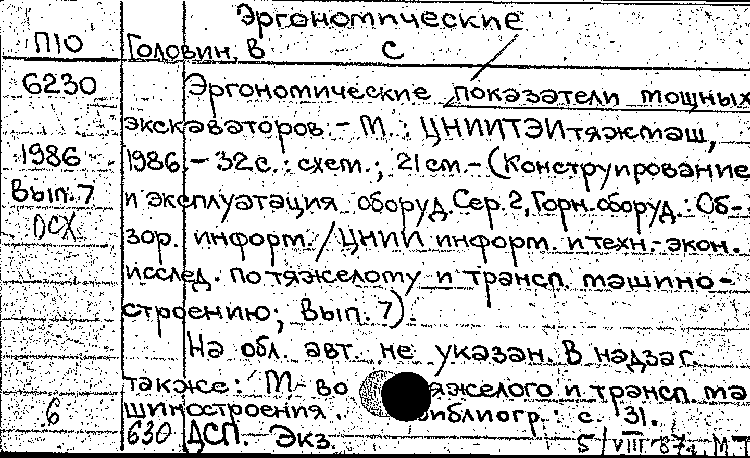 Эргономические
П10 Головин, В С
6230 Эргономические показатели мощных
экскаваторов. - М.: ЦНИИТЭИтяжмаш,
1986 1986. - 32 с.: схем.; 21 см. - (Конструирование
Вып. 7 и эксплуатация оборуд. Сер. 2, Горн. оборуд.: Об-
ОСХ зор. информ. / ЦНИИ информ. и техн.-экон.
исслед. по тяжелому и трансп. машино-
строению; Вып. 7).
На обл. авт. не указан. В надзаг.
также: М-во яжелого и трансп. ма
6 шиностроения. иблиогр.: с. 31.
630 ДСП. Экз.
5/VIII 87г.